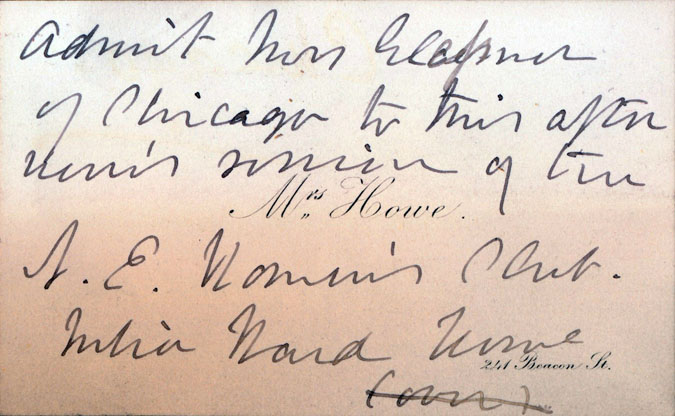 Admit Mrs Glessner
of Chicago to this after
noon's session of the
Mrs. Howe.
N. E. Women's Club.
Julia Ward Howe
241 Beacon St.
(over)